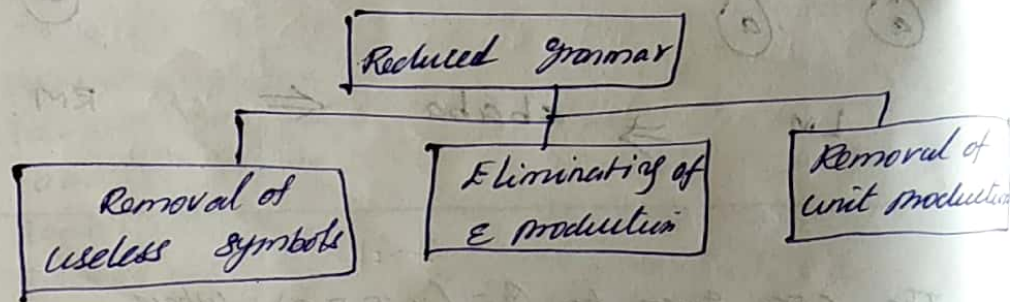 Reduced grammar
Removal of
useless symbols
Eliminating of
ε production
Removal of
unit production